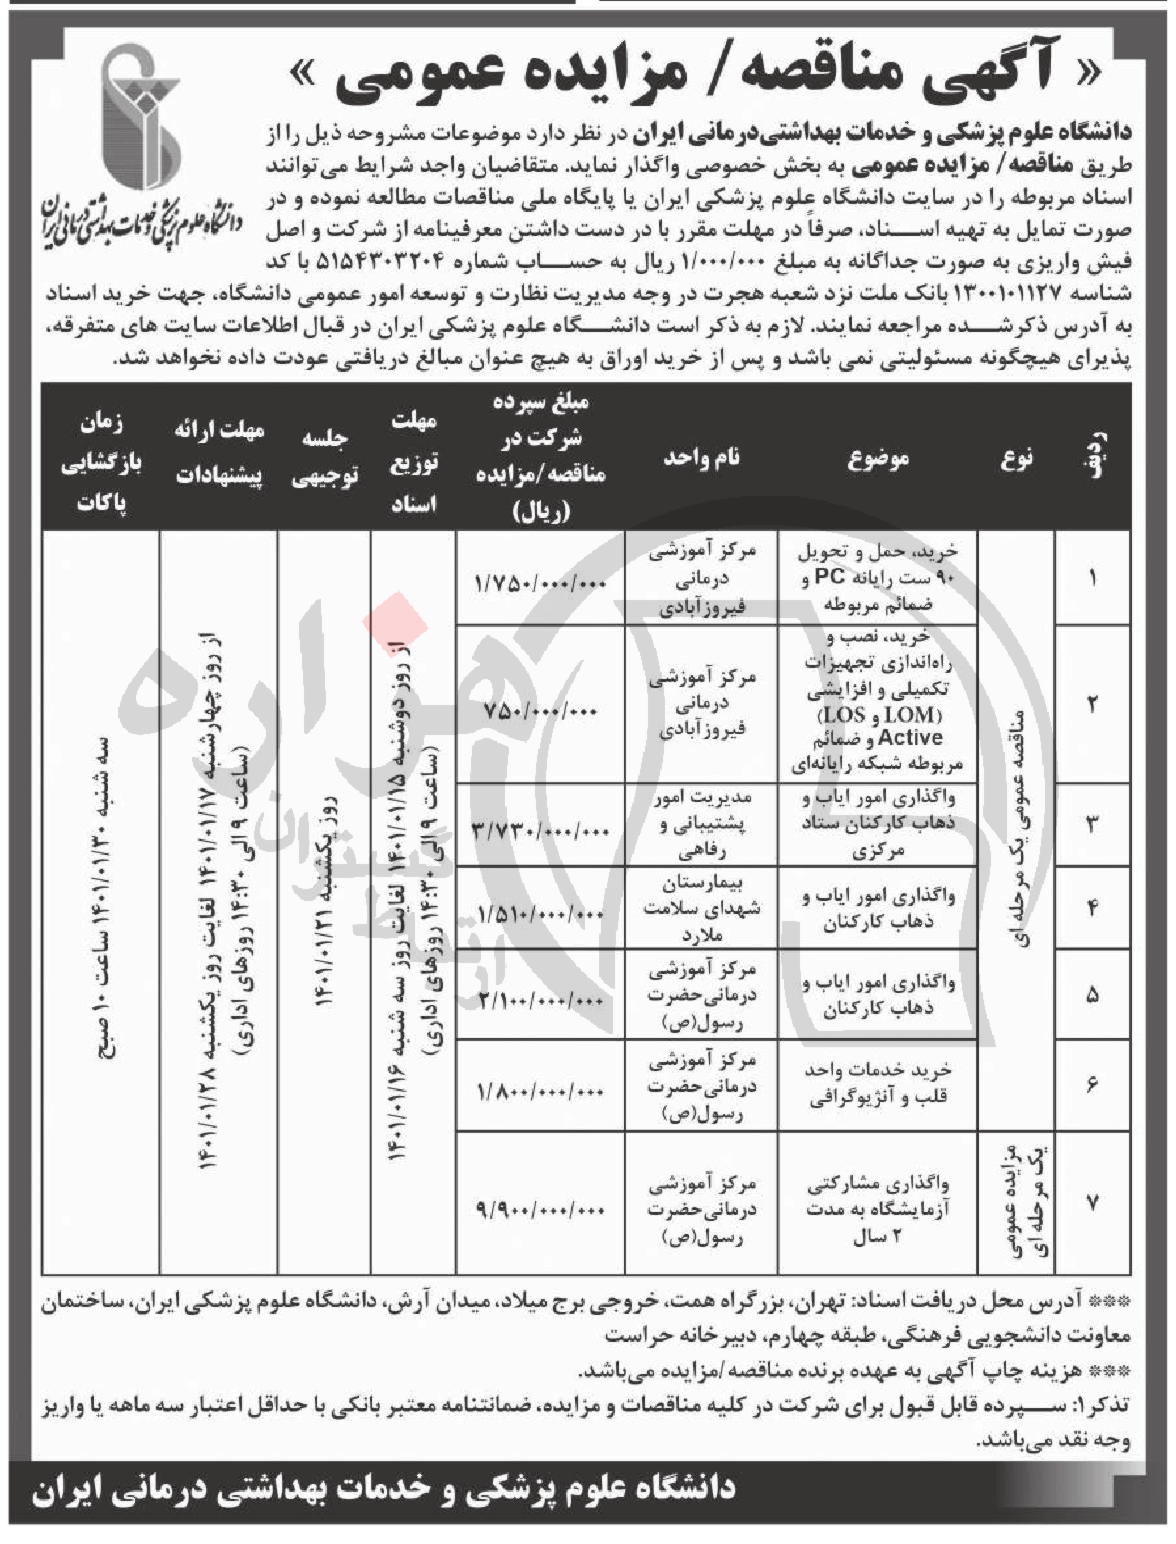 « آگهی مناقصه/ مزایده عمومی »
دانشگاه علوم پزشکی و خدمات بهداشتی درمانی ایران
دانشگاه علوم پزشکی و خدمات بهداشتی‌درمانی ایران در نظر دارد موضوعات مشروحه ذیل را از
طریق مناقصه/ مزایده عمومی به بخش خصوصی واگذار نماید. متقاضیان واجد شرایط می‌توانند
اسناد مربوطه را در سایت دانشگاه علوم پزشکی ایران یا پایگاه ملی مناقصات مطالعه نموده و در
صورت تمایل به تهیه اسناد، صرفاً در مهلت مقرر با در دست داشتن معرفینامه از شرکت و اصل
فیش واریزی به صورت جداگانه به مبلغ ۱/۰۰۰/۰۰۰ ریال به حساب شماره ۵۱۵۴۳۰۳۲۰۴ با کد
شناسه ۱۳۰۰۱۰۱۱۲۷ بانک ملت نزد شعبه هجرت در وجه مدیریت نظارت و توسعه امور عمومی دانشگاه، جهت خرید اسناد
به آدرس ذکرشده مراجعه نمایند. لازم به ذکر است دانشگاه علوم پزشکی ایران در قبال اطلاعات سایت های متفرقه،
پذیرای هیچگونه مسئولیتی نمی باشد و پس از خرید اوراق به هیچ عنوان مبالغ دریافتی عودت داده نخواهد شد.
ردیف
نوع
موضوع
نام واحد
مبلغ سپرده
شرکت در
مناقصه/مزایده
(ریال)
مهلت
توزیع
اسناد
جلسه
توجیهی
مهلت ارائه
پیشنهادات
زمان
بازگشایی
پاکات
۱
مناقصه عمومی یک مرحله ای
خرید، حمل و تحویل
۹۰ ست رایانه PC و
ضمائم مربوطه
مرکز آموزشی
درمانی
فیروزآبادی
۱/۷۵۰/۰۰۰/۰۰۰
از روز دوشنبه ۱۴۰۱/۰۱/۱۵ لغایت روز سه شنبه ۱۴۰۱/۰۱/۱۶
(ساعت ۹ الی ۱۴:۳۰ روزهای اداری)
روز یکشنبه ۱۴۰۱/۰۱/۲۱
از روز چهارشنبه ۱۴۰۱/۰۱/۱۷ لغایت روز یکشنبه ۱۴۰۱/۰۱/۲۸
(ساعت ۹ الی ۱۴:۳۰ روزهای اداری)
سه شنبه ۱۴۰۱/۰۱/۳۰ ساعت ۱۰ صبح
۲
خرید، نصب و
راه‌اندازی تجهیزات
تکمیلی و افزایشی
(LOM و LOS)
Active و ضمائم
مربوطه شبکه رایانه‌ای
مرکز آموزشی
درمانی
فیروزآبادی
۷۵۰/۰۰۰/۰۰۰
۳
واگذاری امور ایاب و
ذهاب کارکنان ستاد
مرکزی
مدیریت امور
پشتیبانی و
رفاهی
۳/۷۳۰/۰۰۰/۰۰۰
۴
واگذاری امور ایاب و
ذهاب کارکنان
بیمارستان
شهدای سلامت
ملارد
۱/۵۱۰/۰۰۰/۰۰۰
۵
واگذاری امور ایاب و
ذهاب کارکنان
مرکز آموزشی
درمانی حضرت
رسول(ص)
۲/۱۰۰/۰۰۰/۰۰۰
۶
خرید خدمات واحد
قلب و آنژیوگرافی
مرکز آموزشی
درمانی حضرت
رسول(ص)
۱/۸۰۰/۰۰۰/۰۰۰
۷
مزایده عمومی
یک مرحله ای
واگذاری مشارکتی
آزمایشگاه به مدت
۲ سال
مرکز آموزشی
درمانی حضرت
رسول(ص)
۹/۹۰۰/۰۰۰/۰۰۰
هزاره
ارتباط گستران
*** آدرس محل دریافت اسناد: تهران، بزرگراه همت، خروجی برج میلاد، میدان آرش، دانشگاه علوم پزشکی ایران، ساختمان
معاونت دانشجویی فرهنگی، طبقه چهارم، دبیرخانه حراست
*** هزینه چاپ آگهی به عهده برنده مناقصه/مزایده می‌باشد.
تذکر۱: سپرده قابل قبول برای شرکت در کلیه مناقصات و مزایده، ضمانتنامه معتبر بانکی با حداقل اعتبار سه ماهه یا واریز
وجه نقد می‌باشد.
دانشگاه علوم پزشکی و خدمات بهداشتی درمانی ایران